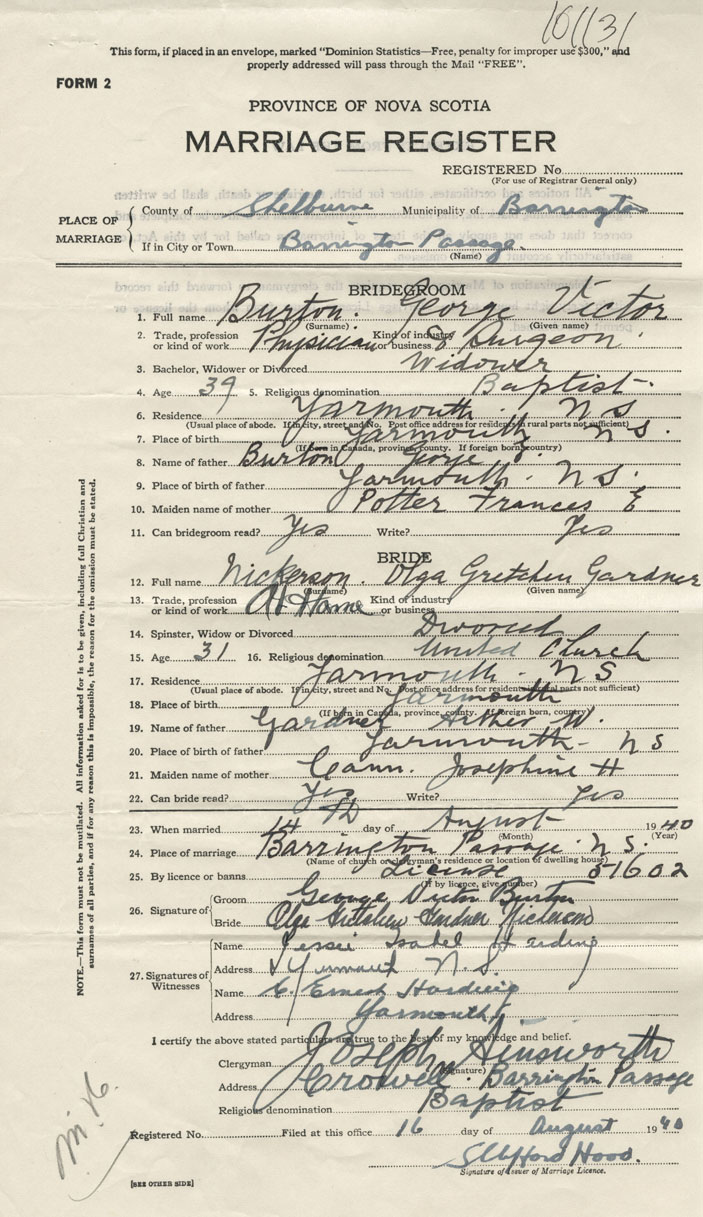 10/131
This form, if placed in an envelope, marked "Dominion Statistics—Free, penalty for improper use $300," and
properly addressed will pass through the Mail "FREE".
FORM 2
PROVINCE OF NOVA SCOTIA
MARRIAGE REGISTER
REGISTERED No.
(For use of Registrar General only)
PLACE OF MARRIAGE
County of Shelburne Municipality of Barrington
If in City or Town Barrington Passage.
(Name)
BRIDEGROOM
1. Full name Burton. George Victor
(Surname) (Given name)
2. Trade, profession or kind of work Physician Kind of industry or business & Surgeon
3. Bachelor, Widower or Divorced Widower
4. Age 39 5. Religious denomination Baptist
6. Residence Yarmouth. N S
(Usual place of abode. If in city, street and No. Post office address for residents in rural parts not sufficient)
7. Place of birth Yarmouth N S.
(If born in Canada, province, county. If foreign born, country)
8. Name of father Burton
9. Place of birth of father Yarmouth. N S.
10. Maiden name of mother Potter Frances E
11. Can bridegroom read? Yes Write? Yes
BRIDE
12. Full name Nickerson. Olga Gretchen Gardner
(Surname) (Given name)
13. Trade, profession or kind of work At Home Kind of industry or business
14. Spinster, Widow or Divorced Divorced
15. Age 31 16. Religious denomination United Church
17. Residence Yarmouth. N S
(Usual place of abode. If in city, street and No. Post office address for residents in rural parts not sufficient)
18. Place of birth Yarmouth
(If born in Canada, province, county. If foreign born, country)
19. Name of father Gardner Arthur W.
20. Place of birth of father Yarmouth N S
21. Maiden name of mother Cann. Josephine H
22. Can bride read? Yes Write? Yes
23. When married 14 Th day of August 1940
(Month) (Year)
24. Place of marriage Barrington Passage. N S.
(Name of church or clergyman's residence or location of dwelling house)
25. By licence or banns License 51602
(If by licence, give number)
26. Signature of
Groom George Victor Burton
Bride Olga Gretchen Gardner Nickerson
27. Signatures of Witnesses
Name Jessie Isabel Harding
Address Yarmouth N.S.
Name E. Ernest Harding
Address Yarmouth
I certify the above stated particulars are true to the best of my knowledge and belief.
Clergyman Joseph Ainsworth
(Signature)
Address Crowell. Barrington Passage
Religious denomination Baptist
Registered No. Filed at this office 16 day of August 1940
Hood.
Signature of Issuer of Marriage Licence.
[SEE OTHER SIDE]
NOTE.—This form must not be mutilated. All information asked for is to be given, including full Christian and
surnames of all parties, and if for any reason this is impossible, the reason for the omission must be stated.